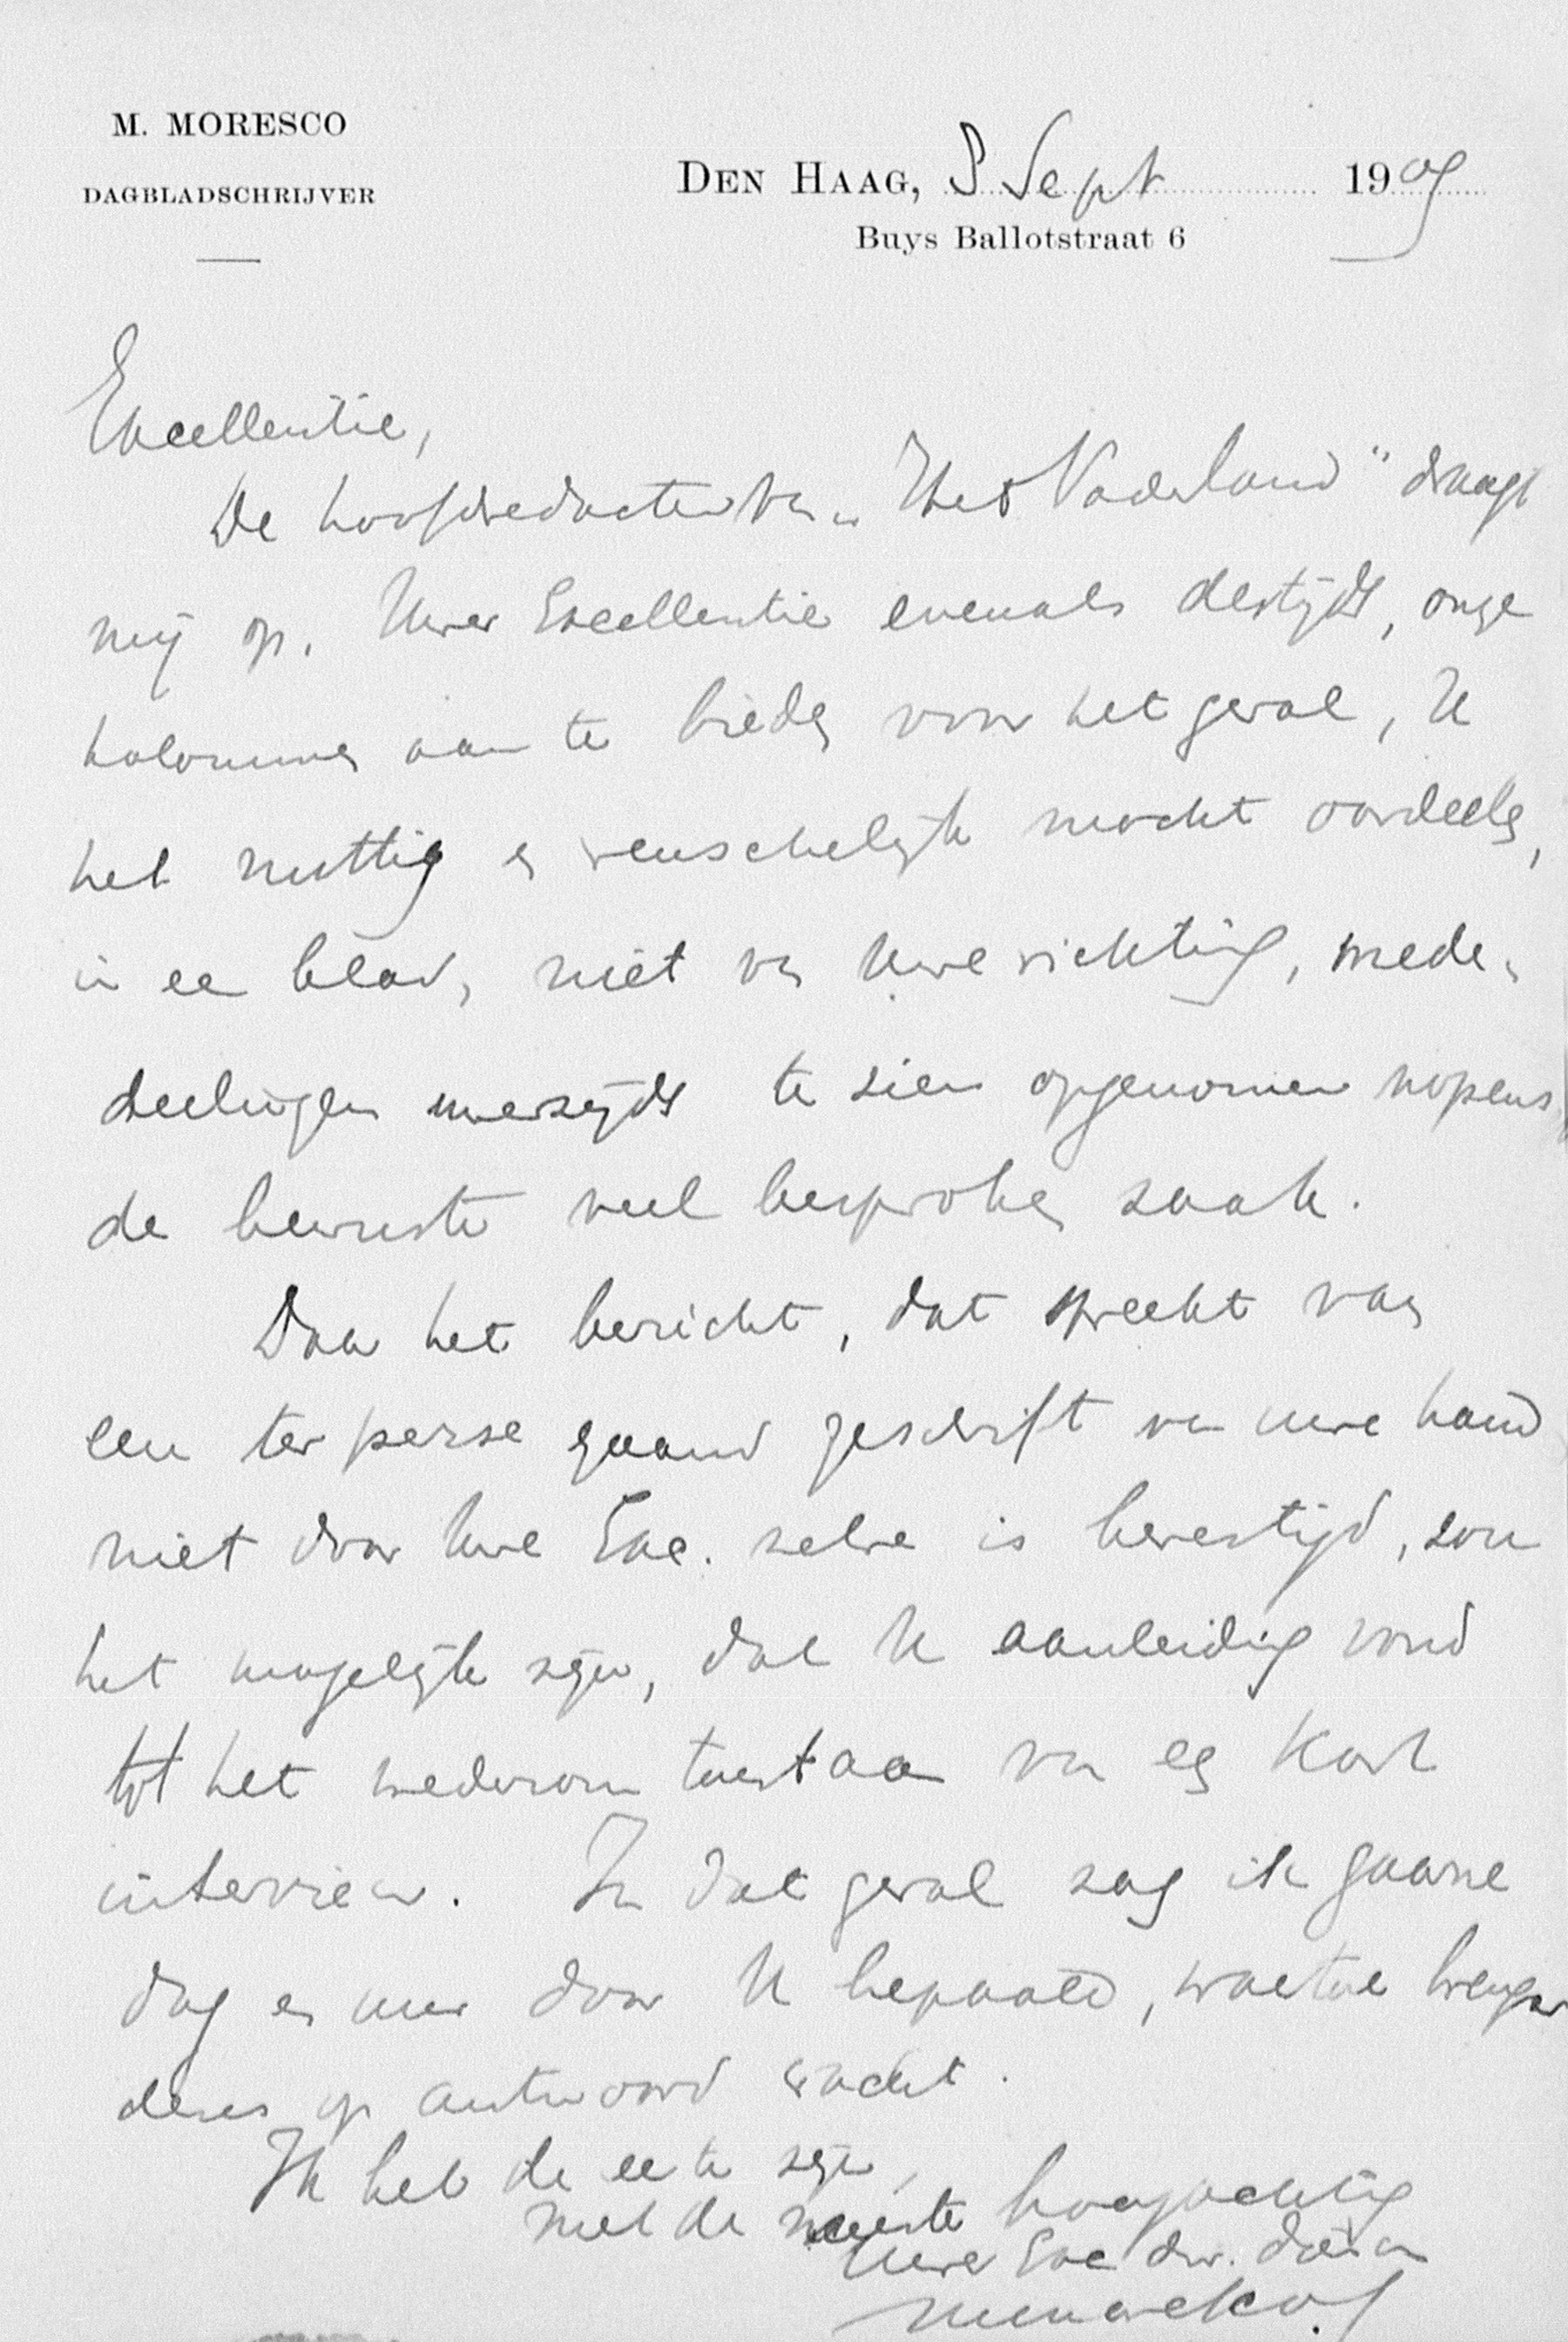 M. MORESCO
DAGBLADSCHRIJVER
DEN HAAG, 8 Sept 1909
Buys Ballotstraat 6
Excellentie,
De hoofdredacteur van „Het Vaderland" draagt
mij op, Uwer Excellentie evenals destijds, onze
kolommen aan te bieden voor het geval, U
het nuttig en wenschelijk mocht oordeelen,
in een blad, niet van Uwe richting, mede-
deelingen uwerzijds te zien opgenomen nopens
de bewuste veel besproken zaak.
Daar het bericht, dat spreekt van
een ter perse gaand geschrift van uwe hand
niet door Uwe Exc. zelve is bevestigd, zou
het mogelijk zijn, dat U aanleiding vond
tot het wederom toestaan van een kort
interview. In dat geval zag ik gaarne
dag en uur door U bepaald, waartoe brenger
dezes op antwoord wacht.
Ik heb de eer te zijn,
met de meeste hoogachting
Uwer Exc dw. dienaar